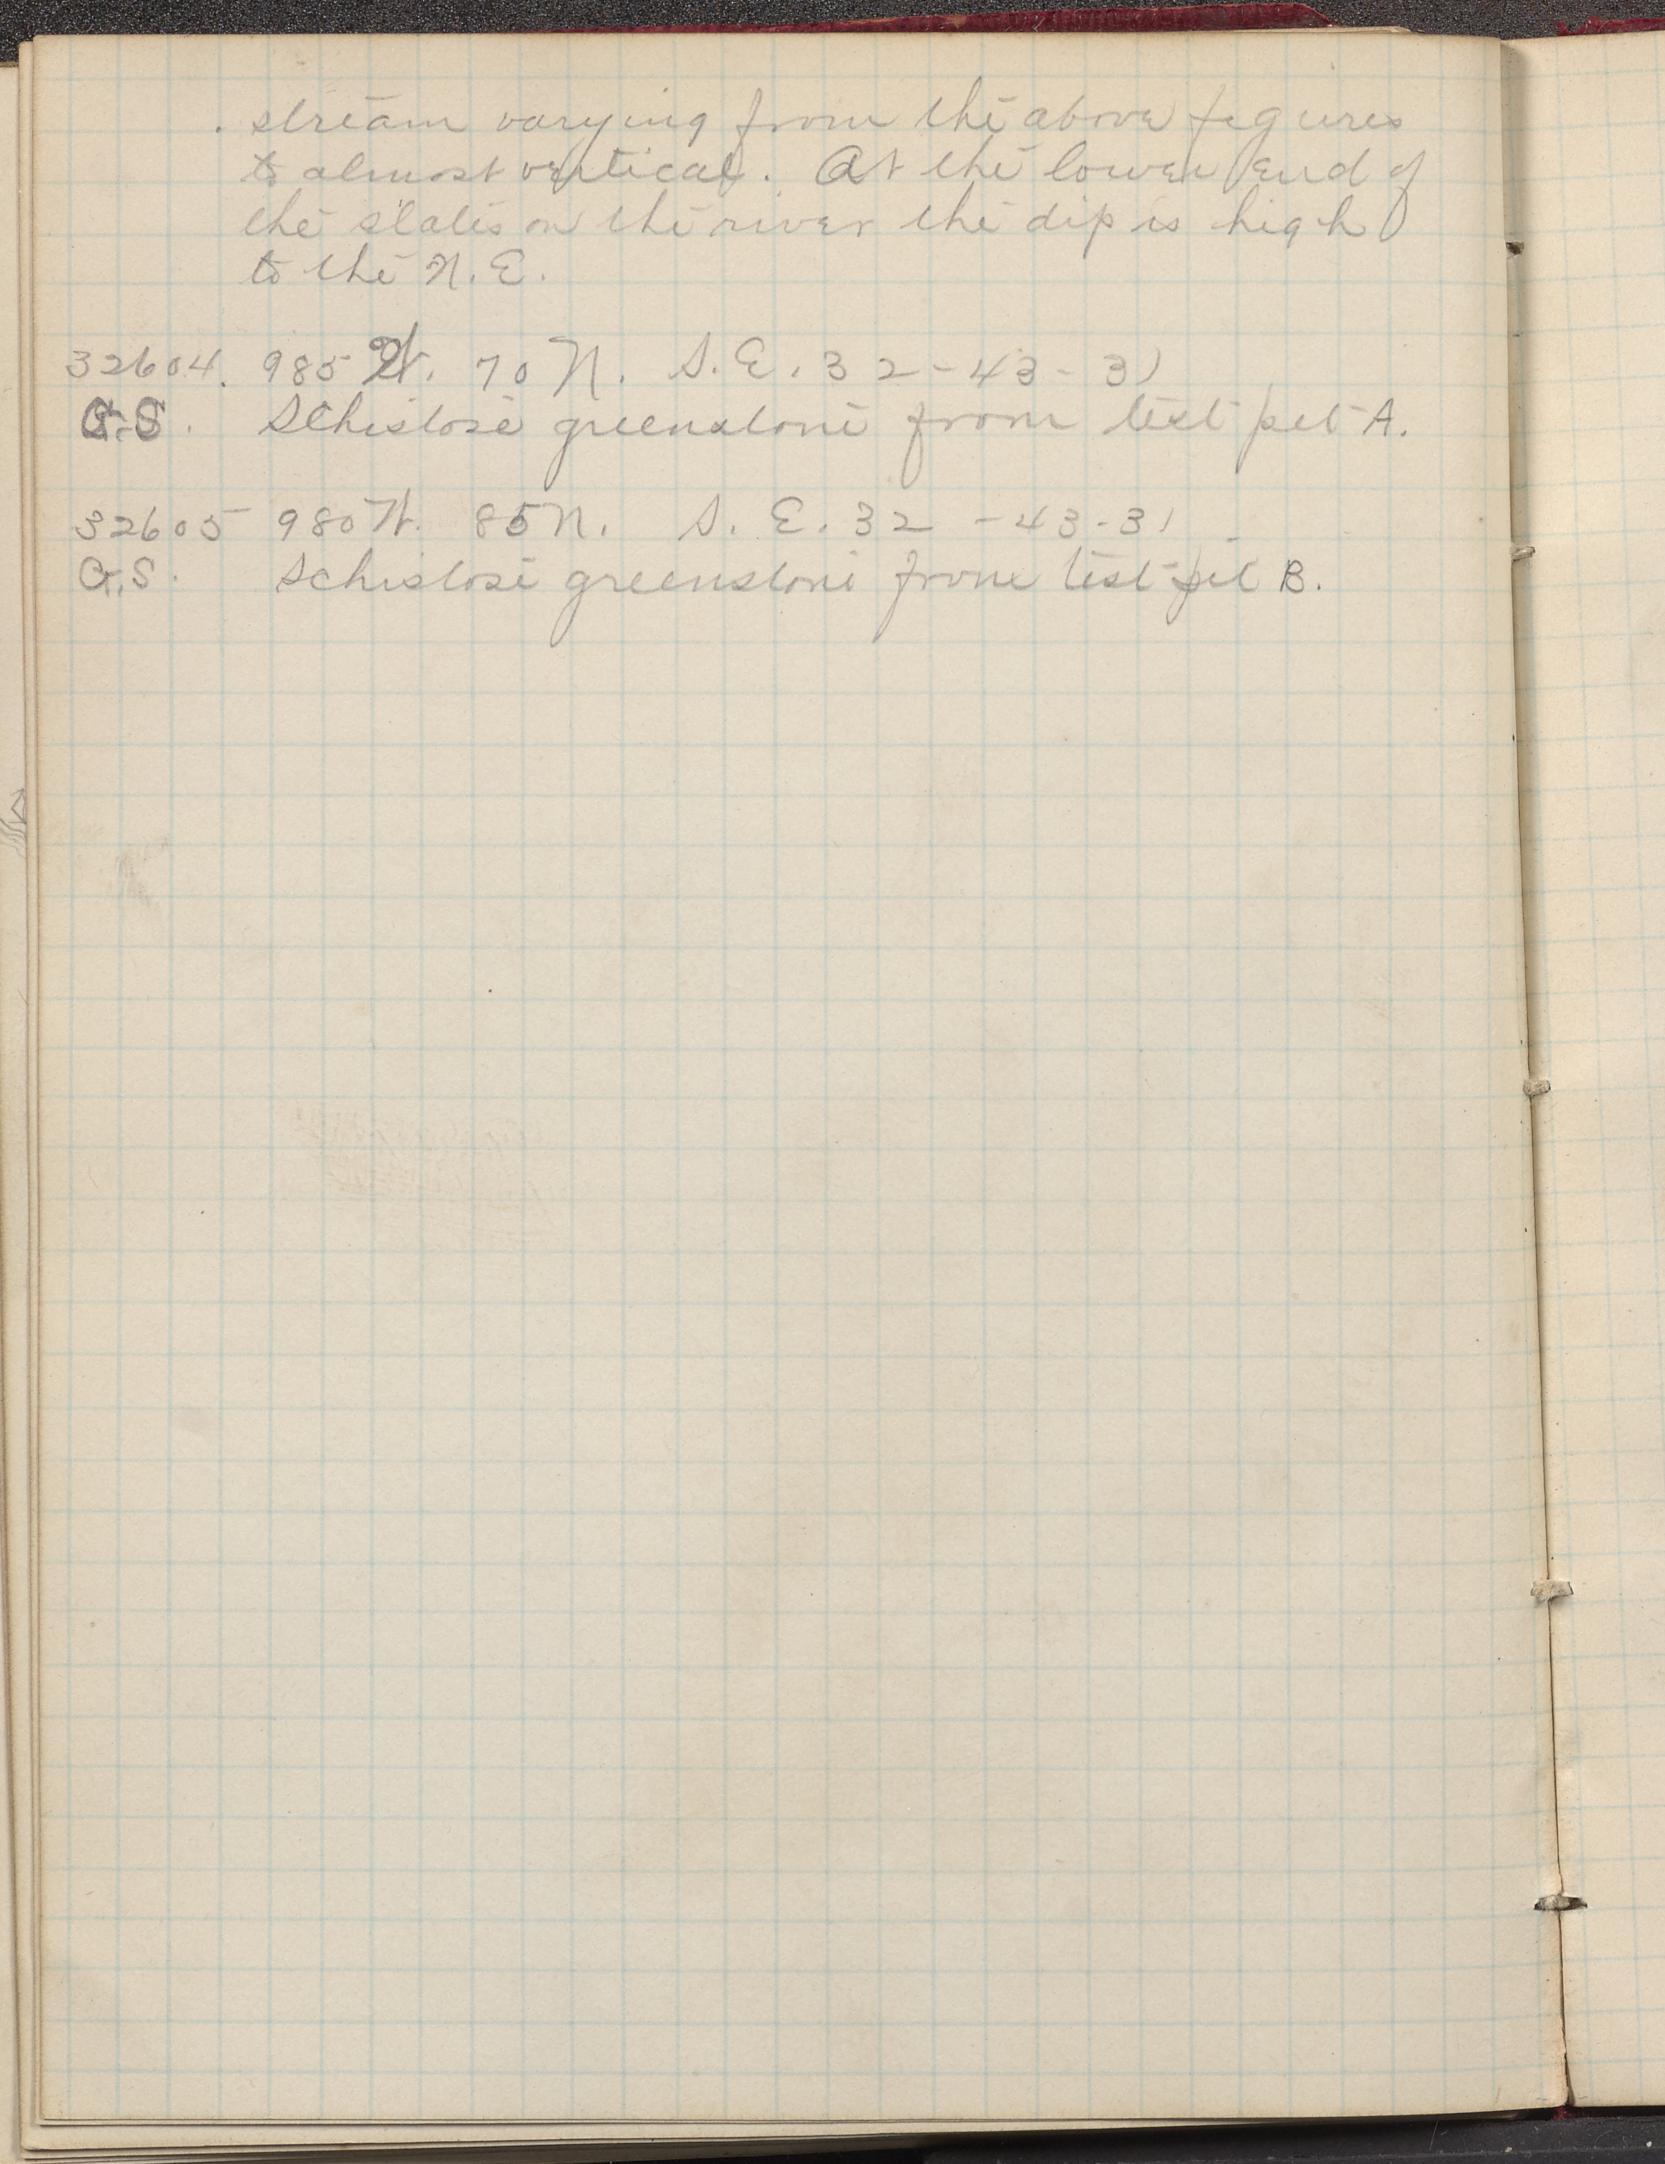 stream varying from the above figures
to almost vertical. At the lower end of
the slates on the river the dip is high
to the N.E.
32604. 985 W. 70 N. S.E. 32-43-31
G.S. Schistose greenstone from test pit A.
32605 980 W. 85 N. S.E. 32-43-31
G.S. Schistose greenstone from test pit B.